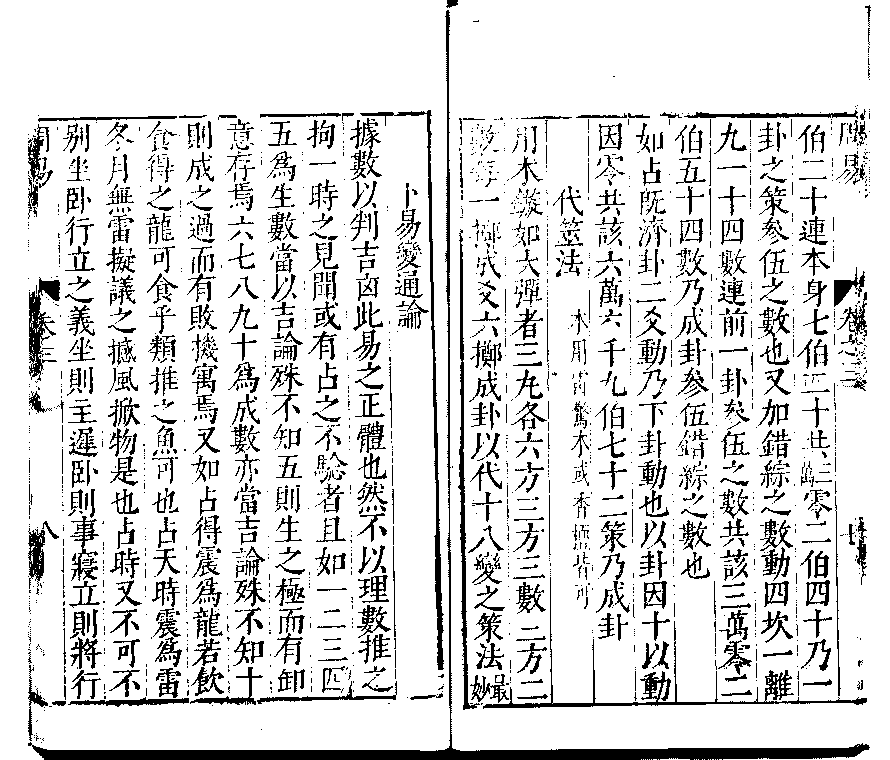 周易 卷之三
伯二十連本身七伯二十共三萬零二伯四十乃一
卦之策叅伍之數也又加錯綜之數動四坎一離
九一十四數連前一卦叅伍之數共該三萬零二
伯五十四數乃成卦叅伍錯綜之數也
如占旣濟卦二爻動乃下卦動也以卦因十以動
因零共該六萬六千九伯七十二策乃成卦
代筮法 木用雷驚木或香檀皆可
用木鏇如大彈者三丸各六方三方三數二方二
數每一擲成爻六擲成卦以代十八變之策法最妙
卜易變通論
據數以判吉凶此易之正體也然不以理數推之
拘一時之見聞或有占之不騐者且如一二三四
五爲生數當以吉論殊不知五則生之極而有卸
意存焉六七八九十爲成數亦當吉論殊不知十
則成之過而有敗機寓焉又如占得震爲龍若飲
食得之龍可食乎類推之魚可也占天時震爲雷
冬月無雷擬議之撼風掀物是也占時又不可不
别坐卧行立之義坐則主遲卧則事寢立則將行
周易 卷之三 八